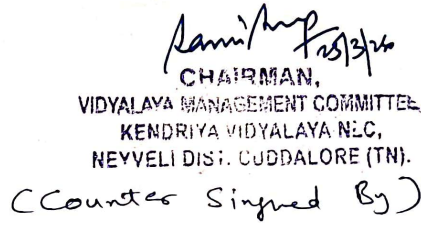 25/3/26
CHAIRMAN,
VIDYALAYA MANAGEMENT COMMITTEE
KENDRIYA VIDYALAYA NLC,
NEYVELI DIST. CUDDALORE (TN).
(Counter Singned By)